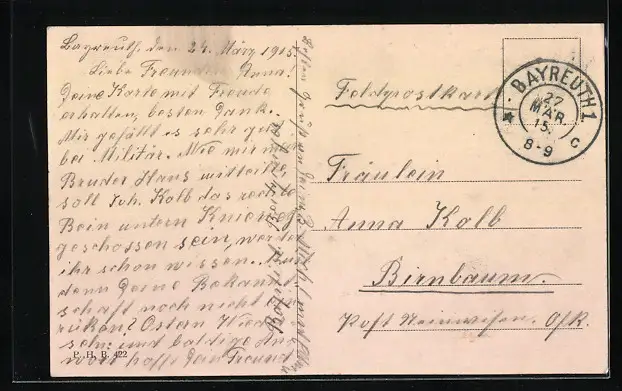 Bayreuth, den 24. März 1915.
Liebe Freundin Anna!
Deine Karte mit Freude
erhalten, besten Dank.
Mir gefällt es sehr gut
bei Militär. Wie mir mein
Bruder Hans mitteilte,
soll Joh. Kolb das rechte
Bein untern Knie weg
geschossen sein, werdet
ihr schon wissen. Muß
denn Deine Bekannt
schaft noch nicht ein
rücken? Ostern Wieder
sehn: und baldige Ant
wort hofft Dein Freund
Feldpostkarte
BAYREUTH 1
27
MÄR.
15.
8-9
c
Fräulein
Anna Kolb
Birnbaum.
Post
P. H. B. 422